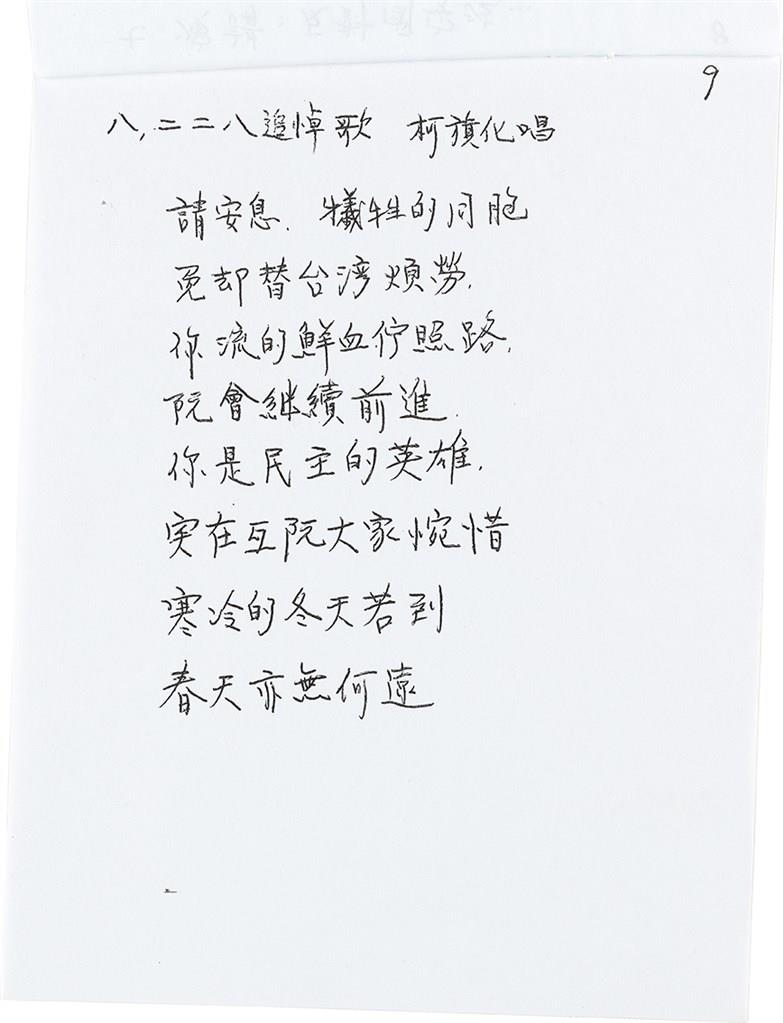 9
八,二二八追悼歌 柯旗化唱
請安息.犧牲的同胞
免却替台湾煩勞.
你流的鮮血佇照路.
阮會継續前進.
你是民主的英雄.
実在互阮大家惋惜
寒冷的冬天若到
春天亦無何遠